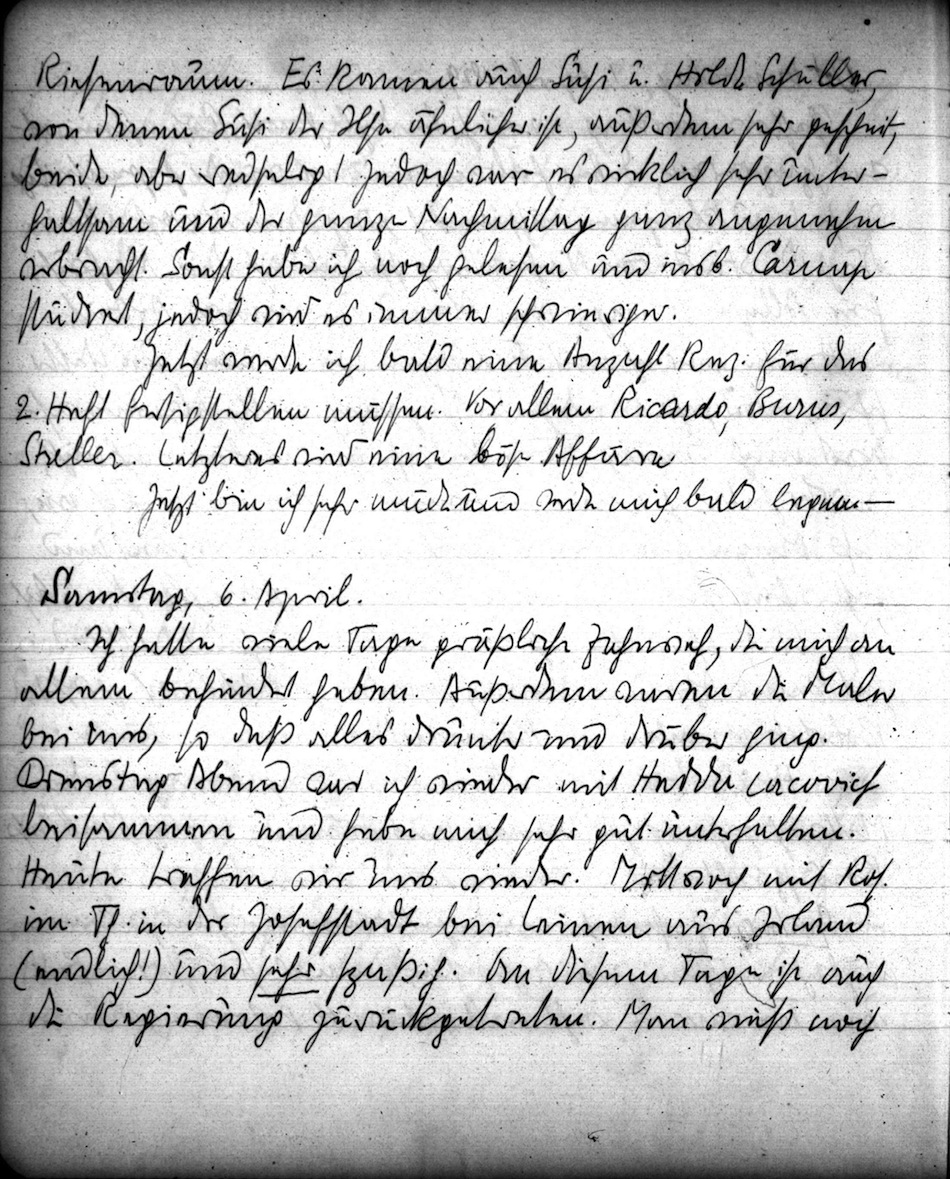 Riesenraum. Es kamen auch Susi u. Hilde Schüller,
von denen Susi der Ilse ähnlicher ist, außerdem sehr gescheit,
beide, aber redselig! Jedoch war es wirklich sehr unter-
haltsam und der ganze Nachmittag ganz angenehm
verbracht. Sonst habe ich noch gelesen und insb. Carnap
studiert, jedoch wird es immer schwieriger.
Jetzt werde ich bald eine Anzahl Rez. für das
2. Heft fertigstellen müssen. Vor allem Ricardo, Burns,
Streller. Letzteres wird eine böse Affäre
Jetzt bin ich sehr müde und werde mich bald legen —
Samstag, 6. April.
Ich hatte viele Tage gräßliche Zahnweh, die mich an
allem behindert haben. Außerdem waren die Maler
bei uns, so daß alles drunter und drüber ging.
Dienstag Abend war ich wieder mit Hedda Lacovich
beisammen und habe mich sehr gut unterhalten.
Heute treffen wir uns wieder. Mittwoch mit Ros.
im Th. in der Josefstadt bei Leinen aus Irland
(endlich!) und sehr spaßig. An diesem Tage ist auch
die Regierung zurückgetreten. Man muß noch